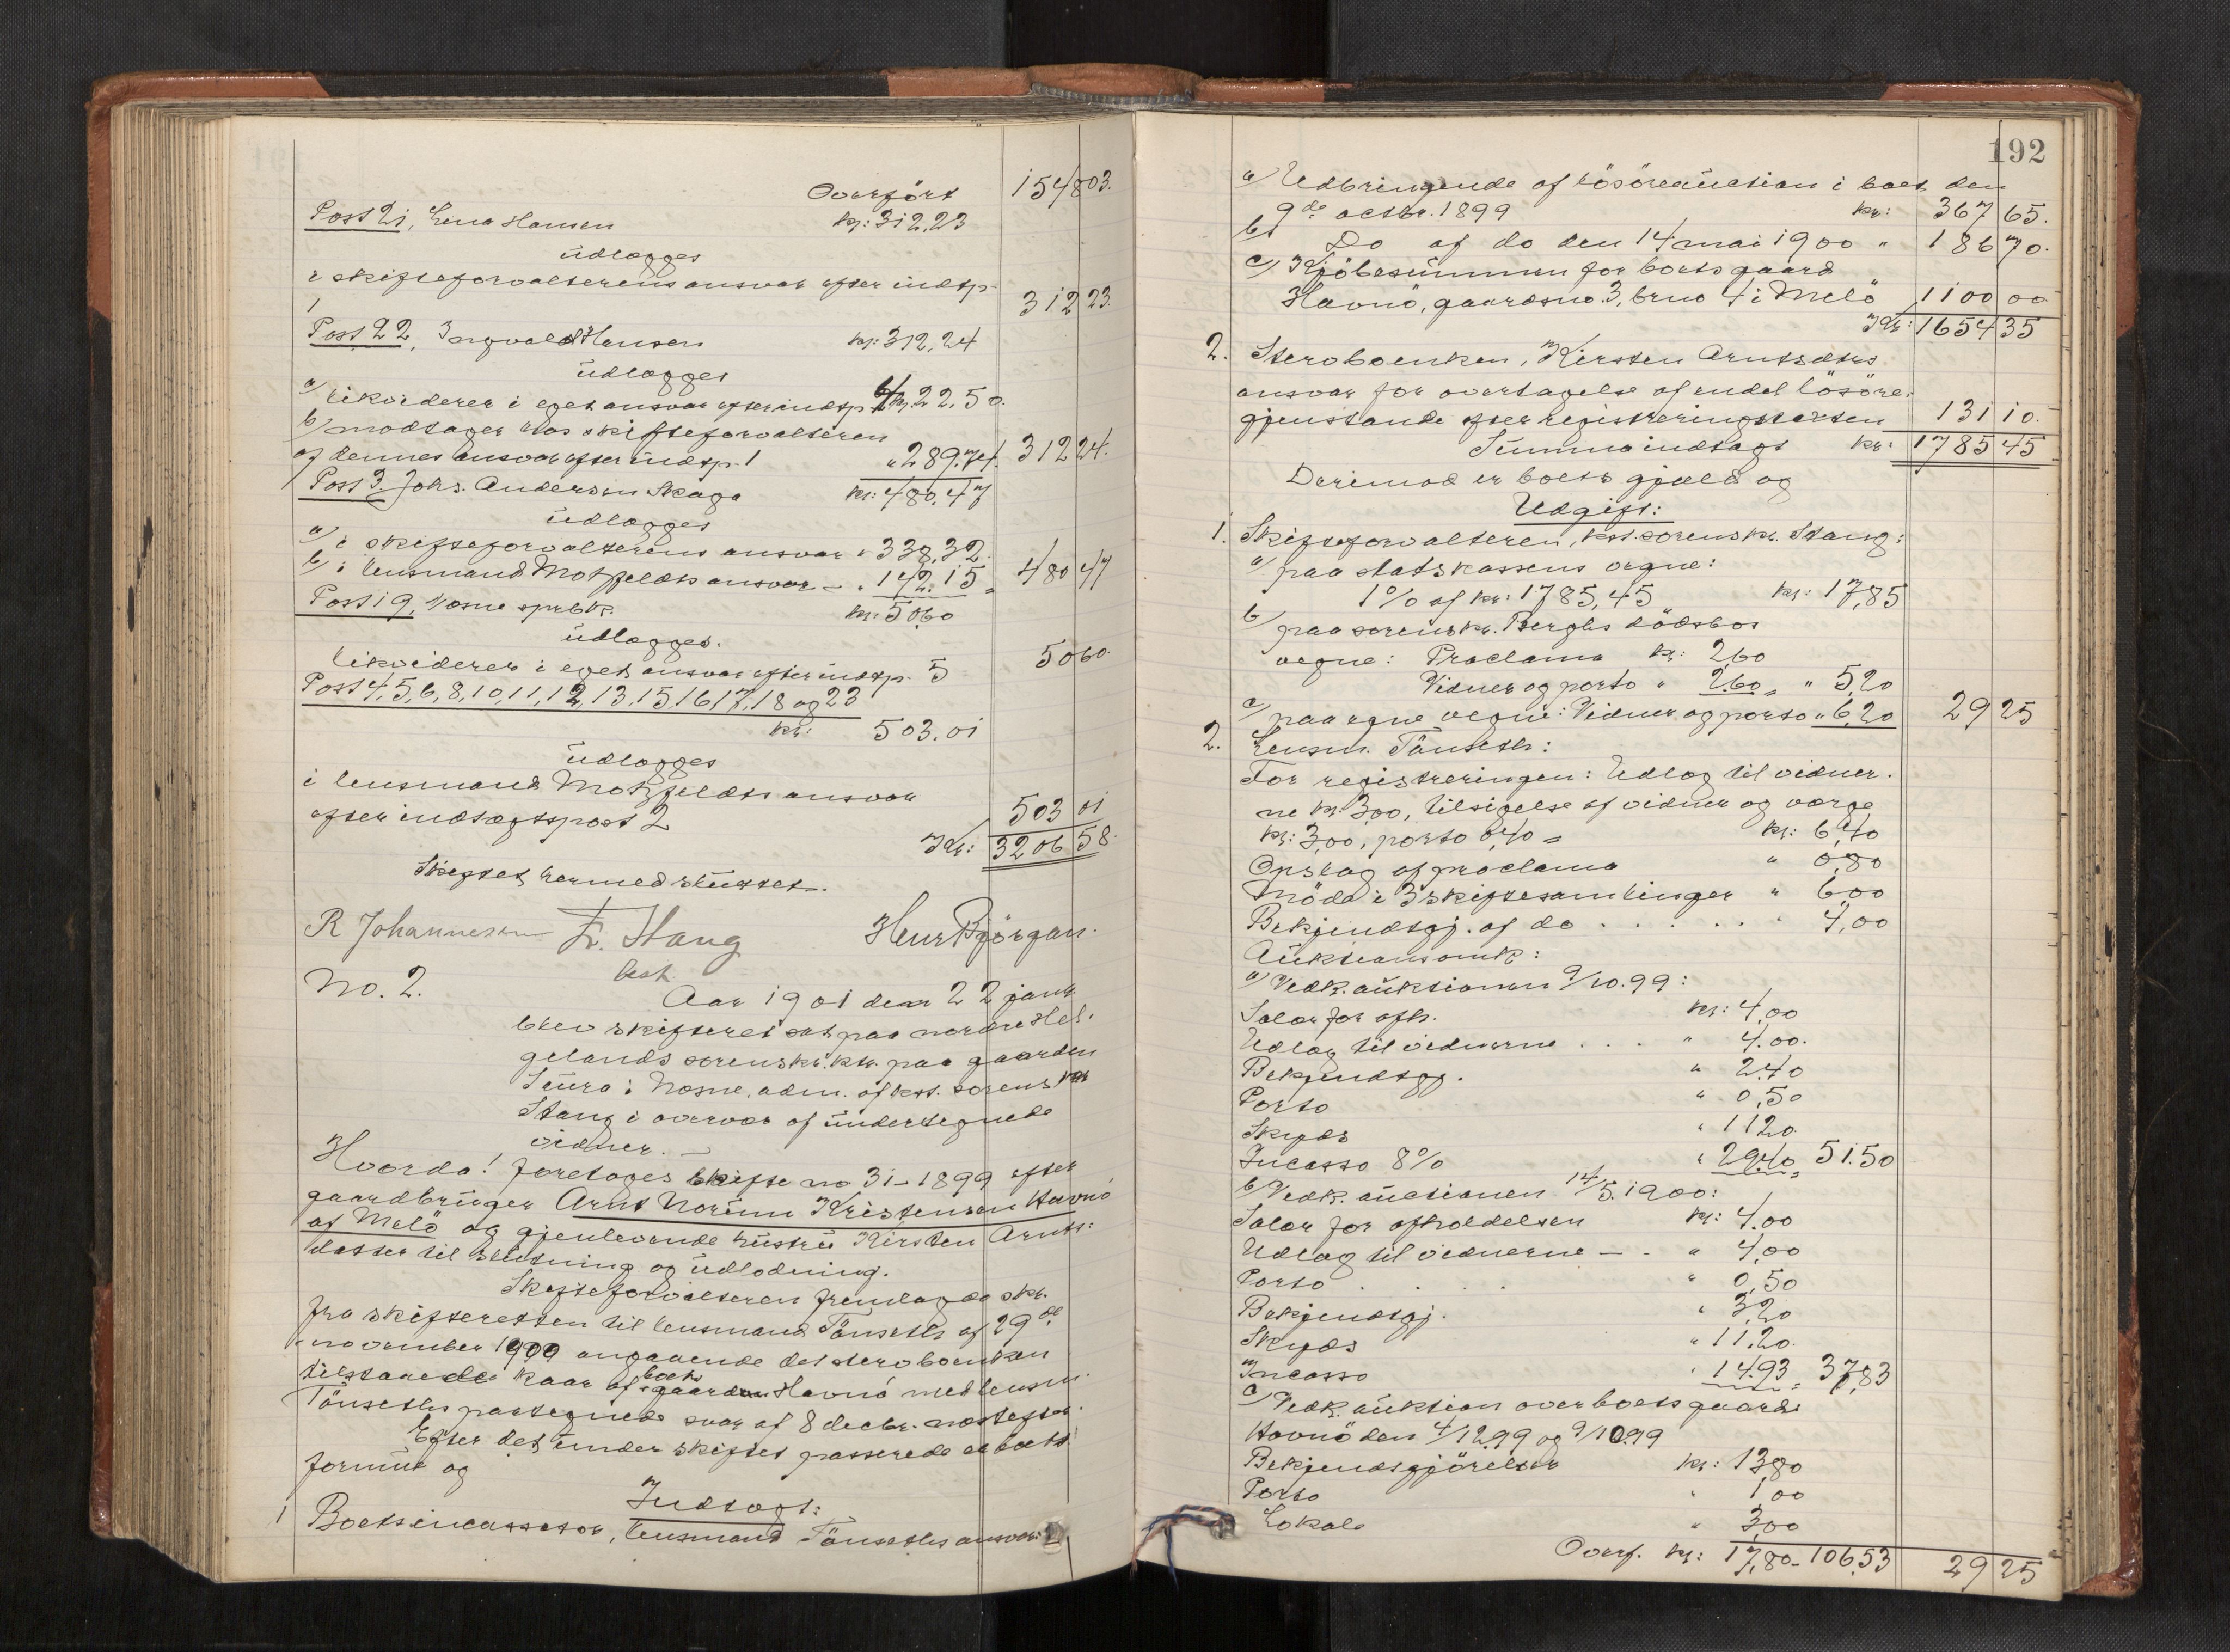 Overført 1548 03.
Post 21, Lina Hansen kr: 312,23
udlægges
i skifteforvalterens ansvar efter indtp.
1 312 23.
Post 22, Ingvald Hansen kr: 312,24
udlægges
a) likviderer i eget ansvar efter indtp. 6/ kr. 22,50.
b) modtager hos skifteforvalteren
af dennes ansvar efter indtp. 1 " 289.74. 312 24.
Post 3. Johs. Andersen Skaga kr: 480,47
udlægges
a) i skifteforvalterens ansvar " 338,32
b) i lensmand Motzfeldts ansvar — " 142.15 = 480 47
Post 19, Nesne sprbk. kr: 50,60
udlægges.
likviderer i eget ansvar efter indtp. 5 50 60.
Post 4, 5, 6, 8, 10, 11, 12, 13, 15 16 17, 18 og 23
kr: 503.01
udlægges
i lensmand Motzfeldts ansvar
efter indtægtspost 2 503 01
Kr: 3206 58.
Skiftet hermed sluttet.
R Johannesen Fr. Stang Henr Bjørgan.
kst.
No. 2. Aar 1901 den 22 janr.
blev skifteret sat paa nordre Hel-
gelands sorenskr.ktr. paa gaarden
Sæura i Nesne, adm. af kst. sorenskr
Stang i overvær af undertegnede
vidner. —
Hvorda! foretoges skifte no 31 - 1899 efter
gaardbruger Arnt Norum Kristensen Havnö
af Melö og gjenlevende hustru Kirsten Arnts-
datter til slutning og udlodning.
Skifteforvalteren fremlagde skr.
fra skifteretten til lensmand Tönseth af 29de
november 1900 angaaende det sterboenken
tilstaaede kaar af boets gaard Havnö med lensm.
Tönseths paategnede svar af 8 decbr. næstefter.
Efter det under skiftet passerede er boets
formue og
Indtægt:
1 Boetsincassator, lensmand Tönseths ansvar:
192
a) Udbringende af lösöreauction i boet den
9de octbr. 1899 kr: 367 65.
b) Do af do den 14 mai 1900 " 186 70.
c) Kjöbesummen for boets gaard
Havnö, gaardsno. 3, brno 4 i Melö 1100 00
Kr: 1654 35
2. Sterboenken, Kirsten Arntsdtrs
ansvar for overtagelse af endel lösöre-
gjenstande efter registreringstaxten 131 10.
Summa indtægt kr: 1785 45
Derimod er boets gjæld og
Udgift:
1. Skifteforvalteren, kst. sorenskr. Stang:
a) paa statskassens vegne:
1% af kr: 1785,45 kr: 17,85
b) paa sorenskr. Berghs dödsbos
vegne: Proclama kr: 2,60
Vidner og porto " 2,60 = " 5,20
c) paa egne vegne: Vidner og porto " 6,20 29 25
2. Lensm. Tönseth:
For registreringen: Udlæg til vidner-
ne kr: 3,00, tilsigelse af vidner og værge
kr: 3,00, porto 0,40 = kr: 6,40
Opslag af proclama " 0,80
Möde i 3 skiftesamlinger " 6,00
Bekjendtgj. af do . . . . . " 4,00
Auktionsomk:
a) Vedk. auktionen 9/10.99:
Salær for afh. kr: 4,00
Udlæg til vidnerne . . . " 4.00.
Bekjendtgj. " 2.40
Porto " 0,50
Skyds " 11 20.
Incasso 8% " 29.40 51.50
b) Vedk. auctionen 14/5.1900:
Salær for afholdelsen kr: 4.00
Udlæg til vidnerne — . " 4,00
Porto . . . . " 0,50
Bekjendtgj. " 3,20
Skyds " 11,20.
Incasso " 14.93 = 37,83
c) Vedk. auktion over boets gaard
Havnö den 4/12.99 og 9/10.99
Bekjendtgjörelser kr: 13,80
Porto " 1,00
Lokale " 3,00
Overf. kr: 17,80 - 106,53 29 25